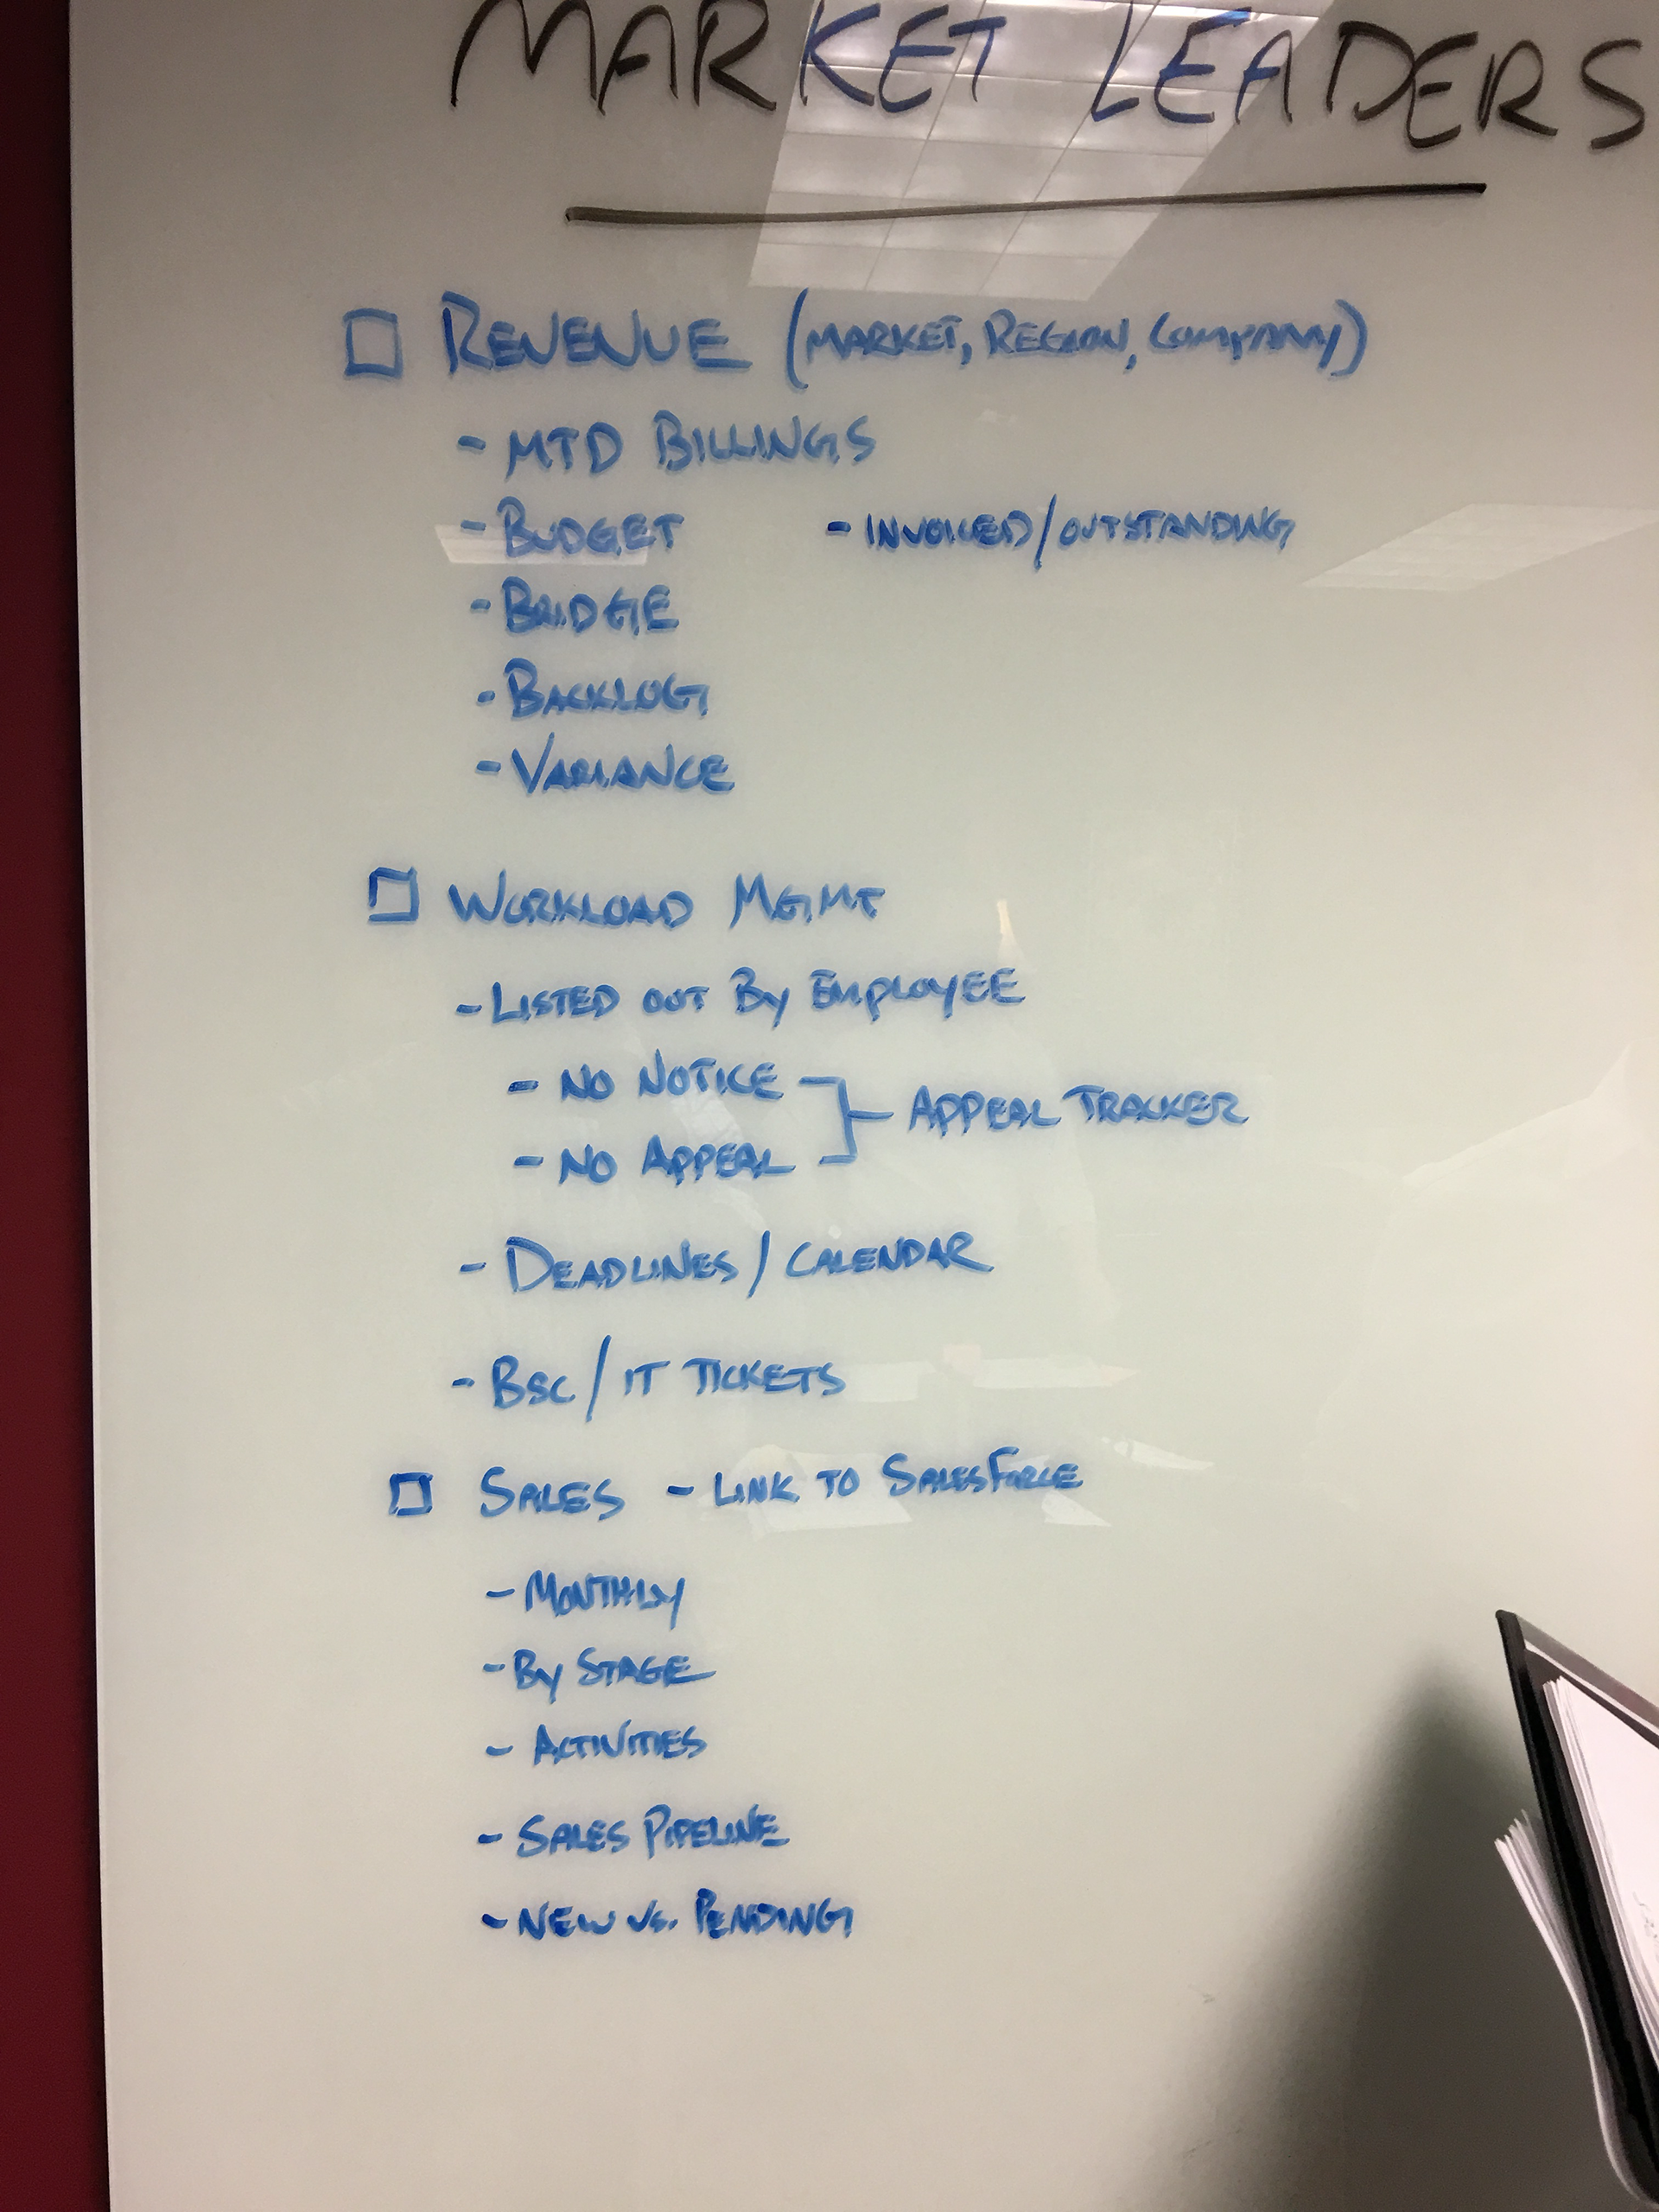 MARKET LEADERS
□ REVENUE (MARKET, REGION, COMPANY)
- MTD BILLINGS
- BUDGET - INVOICED/OUTSTANDING
- BRIDGE
- BACKLOG
- VARIANCE
□ WORKLOAD MGMT
- LISTED OUT BY EMPLOYEE
- NO NOTICE
- NO APPEAL
APPEAL TRACKER
- DEADLINES / CALENDAR
- BSC / IT TICKETS
□ SALES - LINK TO SALESFORCE
- MONTHLY
- BY STAGE
- ACTIVITIES
- SALES PIPELINE
- NEW VS. PENDING